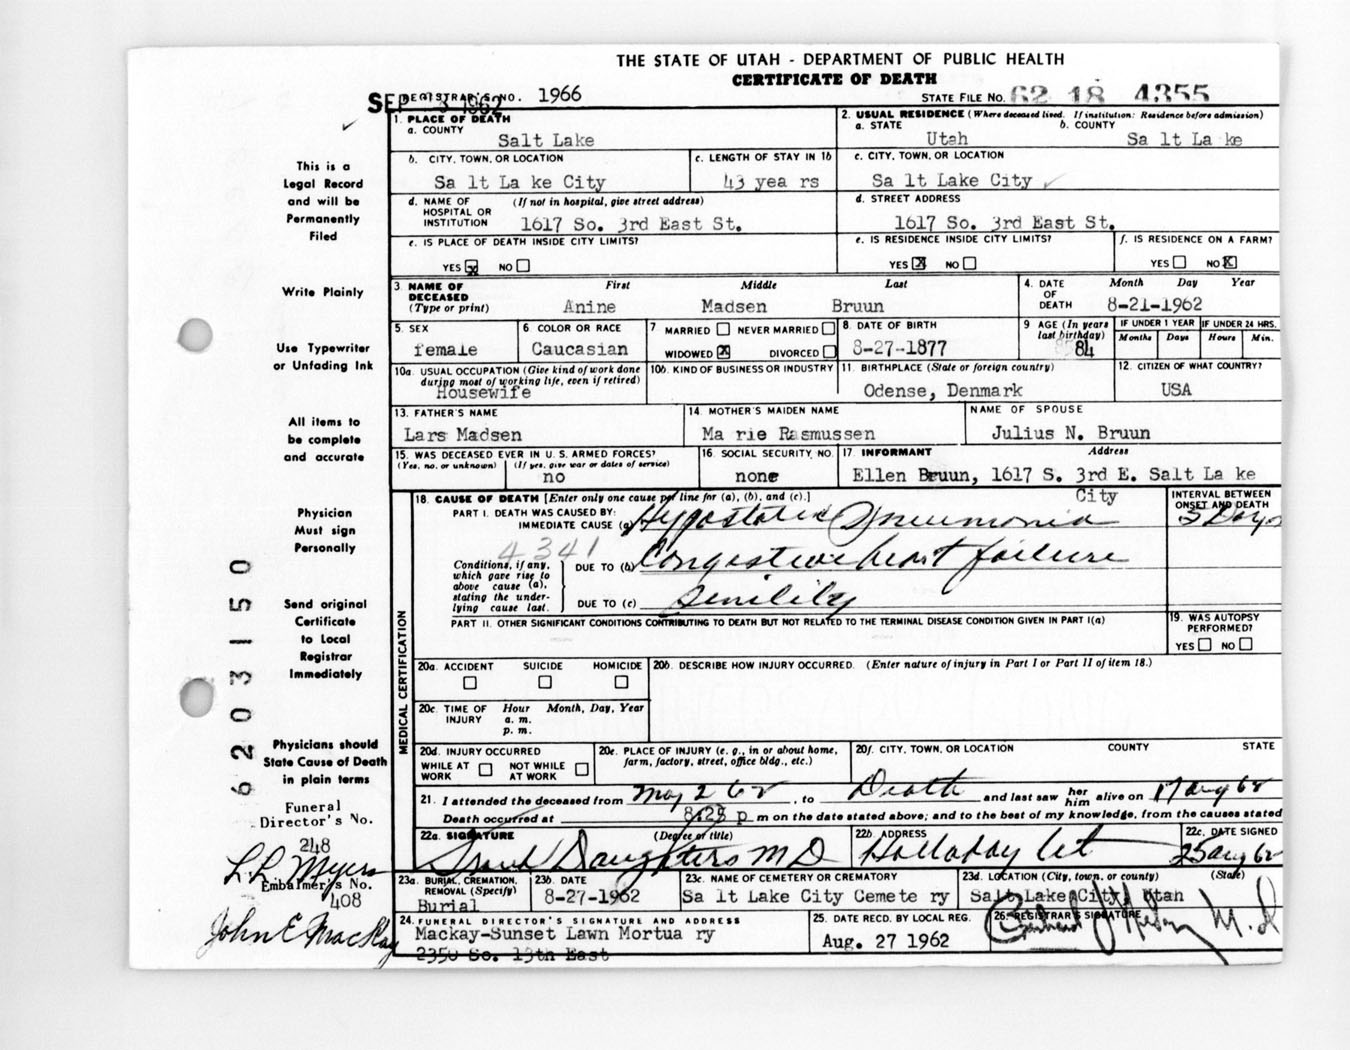 THE STATE OF UTAH - DEPARTMENT OF PUBLIC HEALTH
CERTIFICATE OF DEATH
SEP 3 1962 REGISTRAR'S NO. 1966 STATE FILE NO. 62 18 4355
1. PLACE OF DEATH
a. COUNTY
Salt Lake
2. USUAL RESIDENCE (Where deceased lived. If institution: Residence before admission)
a. STATE b. COUNTY
Utah Sa lt La ke
b. CITY, TOWN, OR LOCATION c. LENGTH OF STAY IN 1b c. CITY, TOWN, OR LOCATION
Sa lt La ke City 43 yea rs Sa lt Lake City
d. NAME OF HOSPITAL OR INSTITUTION (If not in hospital, give street address)
1617 So. 3rd East St.
d. STREET ADDRESS
1617 So. 3rd East St.
e. IS PLACE OF DEATH INSIDE CITY LIMITS?
YES x NO
e. IS RESIDENCE INSIDE CITY LIMITS? f. IS RESIDENCE ON A FARM?
YES X NO YES NO X
3. NAME OF DECEASED (Type or print) First Middle Last
Anine Madsen Bruun
4. DATE OF DEATH Month Day Year
8-21-1962
5. SEX 6 COLOR OR RACE 7 MARRIED NEVER MARRIED WIDOWED X DIVORCED
female Caucasian
8. DATE OF BIRTH
8-27-1877
9 AGE (In years last birthday) IF UNDER 1 YEAR IF UNDER 24 HRS.
Months Days Hours Min.
84
10a. USUAL OCCUPATION (Give kind of work done during most of working life, even if retired)
Housewife
10b. KIND OF BUSINESS OR INDUSTRY
11. BIRTHPLACE (State or foreign country)
Odense, Denmark
12. CITIZEN OF WHAT COUNTRY?
USA
13. FATHER'S NAME 14. MOTHER'S MAIDEN NAME NAME OF SPOUSE
Lars Madsen Ma rie Rasmussen Julius N. Bruun
15. WAS DECEASED EVER IN U. S. ARMED FORCES?
(Yes, no, or unknown) (If yes, give war or dates of service)
no
16. SOCIAL SECURITY NO.
none
17. INFORMANT Address
Ellen Bruun, 1617 S. 3rd E. Salt La ke
City
18. CAUSE OF DEATH [Enter only one cause per line for (a), (b), and (c).]
INTERVAL BETWEEN ONSET AND DEATH
PART I. DEATH WAS CAUSED BY:
IMMEDIATE CAUSE (a) Hypostatic Pneumonia 3 Days
4341
Conditions, if any, which gave rise to above cause (a), stating the underlying cause last.
DUE TO (b) Congestive heart failure
DUE TO (c) Senility
PART II. OTHER SIGNIFICANT CONDITIONS CONTRIBUTING TO DEATH BUT NOT RELATED TO THE TERMINAL DISEASE CONDITION GIVEN IN PART I(a)
19. WAS AUTOPSY PERFORMED?
YES NO
MEDICAL CERTIFICATION
20a. ACCIDENT SUICIDE HOMICIDE
20b. DESCRIBE HOW INJURY OCCURRED. (Enter nature of injury in Part I or Part II of item 18.)
20c. TIME OF INJURY Hour Month, Day, Year
a. m.
p. m.
20d. INJURY OCCURRED
WHILE AT WORK NOT WHILE AT WORK
20e. PLACE OF INJURY (e. g., in or about home, farm, factory, street, office bldg., etc.)
20f. CITY, TOWN, OR LOCATION COUNTY STATE
21. I attended the deceased from May 2 62, to Death and last saw her him alive on 17 Aug 62
Death occurred at 8:25 p m on the date stated above; and to the best of my knowledge, from the causes stated
22a. SIGNATURE (Degree or title) 22b. ADDRESS 22c. DATE SIGNED
Daughters M D Holladay Ut 25 Aug 62
23a. BURIAL, CREMATION, REMOVAL (Specify)
Burial
23b. DATE
8-27-1962
23c. NAME OF CEMETERY OR CREMATORY
Sa lt Lake City Cemete ry
23d. LOCATION (City, town, or county) (State)
Salt Lake City, Utah
24. FUNERAL DIRECTOR'S SIGNATURE AND ADDRESS
Mackay-Sunset Lawn Mortua ry
2350 So. 13th East
25. DATE RECD. BY LOCAL REG.
Aug. 27 1962
26. REGISTRAR'S SIGNATURE
M.D
This is a
Legal Record
and will be
Permanently
Filed
Write Plainly
Use Typewriter
or Unfading Ink
All items to
be complete
and accurate
Physician
Must sign
Personally
Send original
Certificate
to Local
Registrar
Immediately
Physicians should
State Cause of Death
in plain terms
Funeral
Director's No.
248
L L Myers
Embalmer's No.
408
John E MacKay
6203150